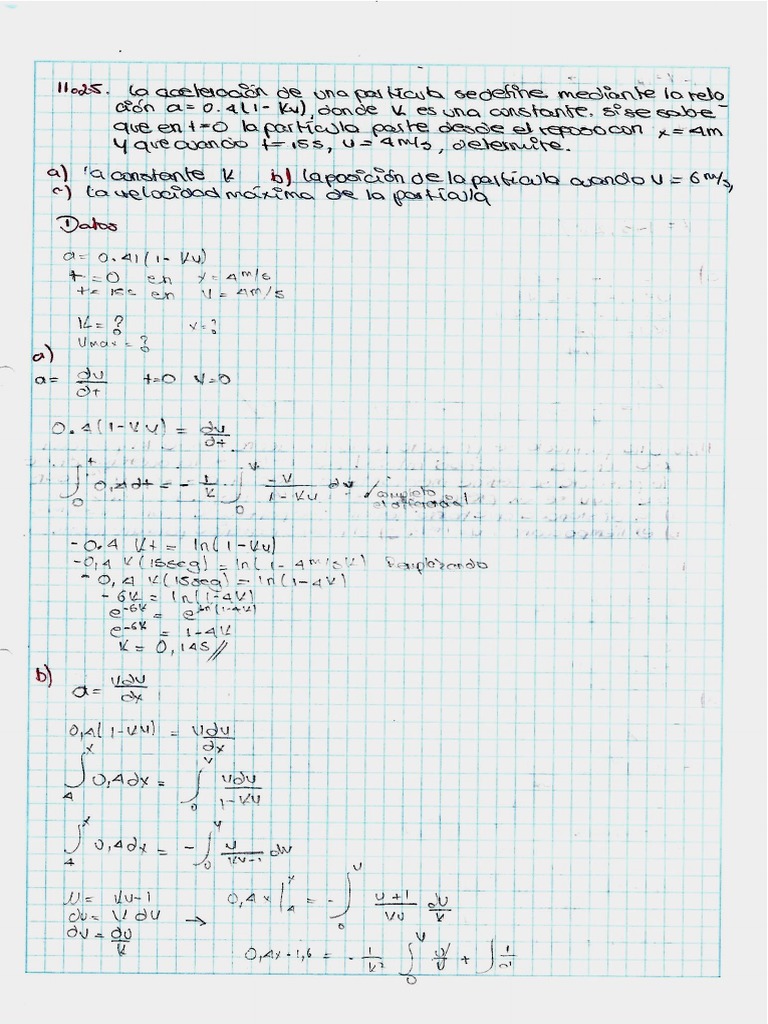 11.25. La aceleración de una partícula se define mediante la rela-
ción a = 0.4(1 - Kv), donde K es una constante. si se sabe
que en t=0 la partícula parte desde el reposo con x = 4m
y que cuando t = 15s, v = 4m/s, determine.
a) la constante K b) La posición de la partícula cuando v = 6 m/s,
c) La velocidad máxima de la partícula
Datos
a = 0.41(1 - Kv)
t = 0 en x = 4 m/s
t = 15s en v = 4 m/s
K = ? x = ?
Vmax = ?
a)
a = dv/dt t=0 v=0
0.4(1-Kv) = dv/dt
∫₀ᵗ 0,4dt = - 1/K ∫₀ᵛ -K/(1-Kv) dv completo el diferencial
-0.4 Kt = ln(1-Kv)
-0,4 K(15seg) = ln(1 - 4m/s K) Remplazando
-0,4 K(15seg) = ln(1-4K)
-6K = ln(1-4K)
e^-6K = e^ln(1-4K)
e^-6K = 1-4K
K = 0,145 //
b)
a = vdv/dx
0,4(1-Kv) = vdv/dx
∫₄ˣ 0,4dx = ∫₀ᵛ vdv/(1-Kv)
∫₄ˣ 0,4dx = - ∫₀ᵛ v/(Kv-1) dv
u = Kv-1 0,4x |₄ˣ = - ∫₀ᵛ (u+1)/Ku du/K
du = K dv →
dv = du/K
0,4x - 1,6 = - 1/K² ∫₀ᵛ u/u + ∫ 1/u